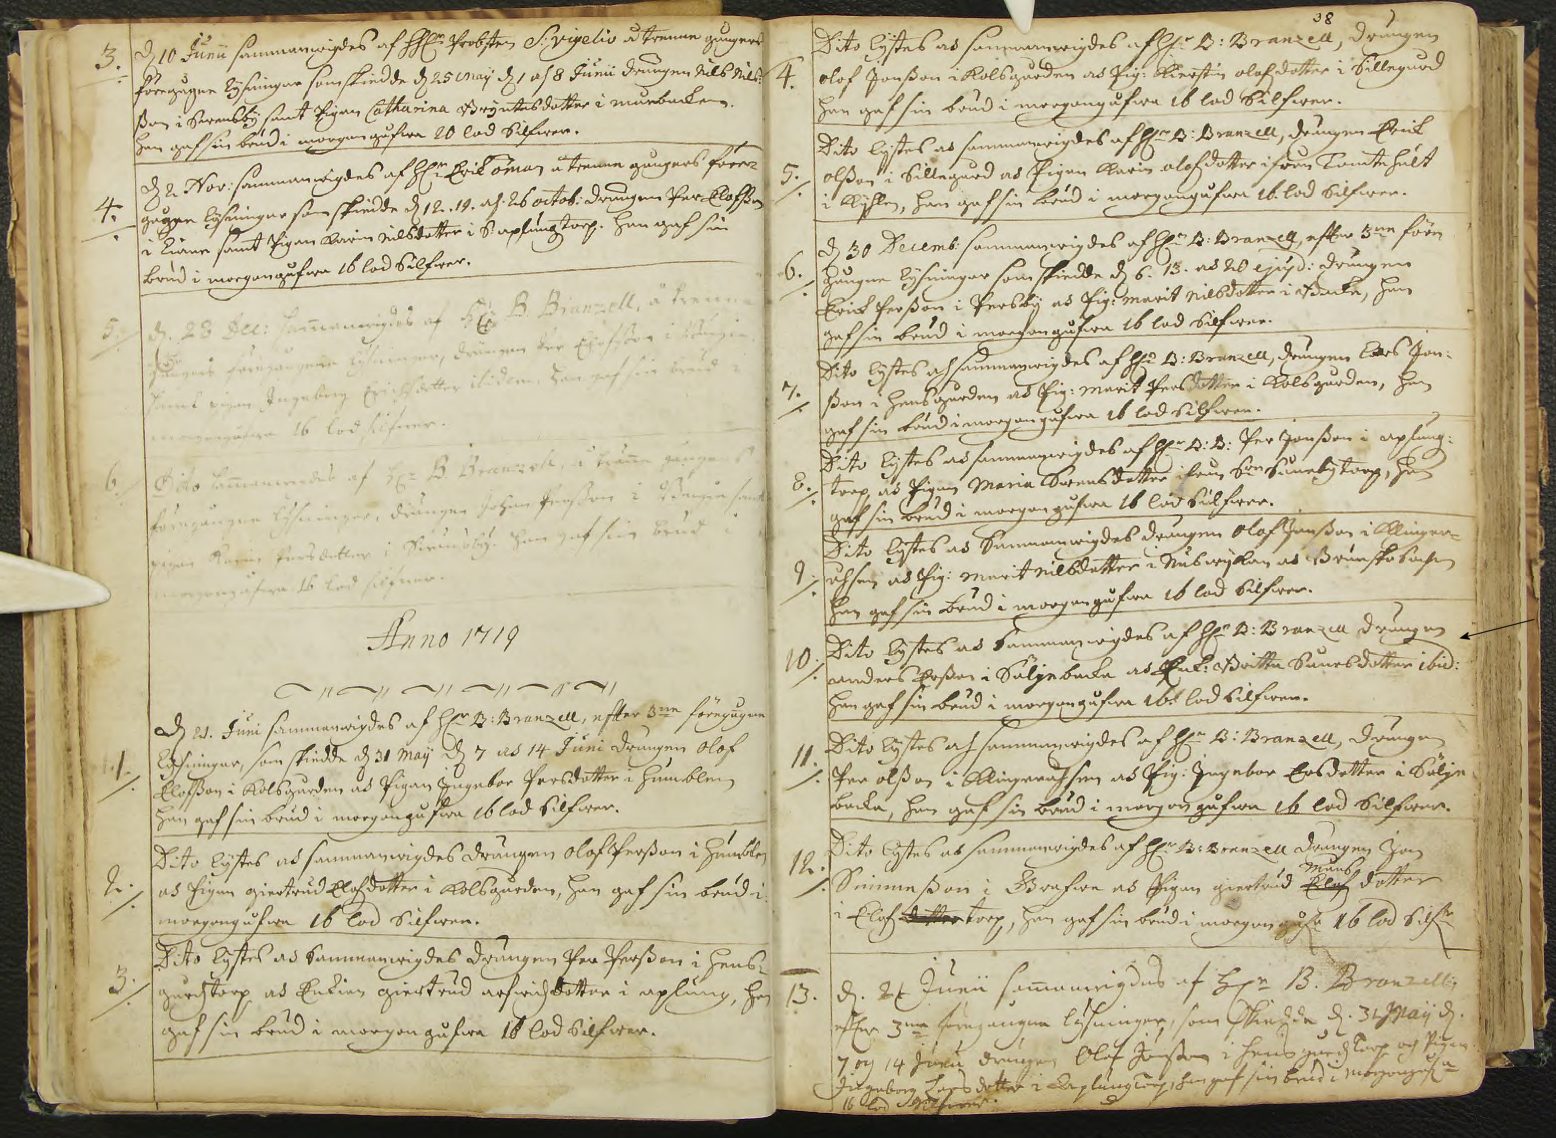 3. d 10 Junii sammanwigdes af HHr Probsten S: Vigelio à trenne gungers
föregagne lysningar som skiedde d 25 Maij d 1 as 8 Junii drengen Nils Nils:
ßon i Swensby samt Pigan Catharina Bryntesdotter i murbacken.
han gaf sin brud i morgongufwa 20 lod silfwer.
4. d 2 Nov: sammanwigdes af Hr Erik öman à trenne gungers före=
gagne lysningar som skiedde d 12. 19. as 26 octob: drengen Per Elofßon
i Liane samt Pigan Karin Nilsdotter i S: aplungtorp. han gaf sin
brud i morgongufwa 16 lod silfwer.
5. d. 28 Dec: Sammanwigdes af Hr B Branzell, à trenne
gungers föregangne lysningar, drengen Per Elofsson i
samt pigan Ingeborg Erichsdotter ibidem, han gaf sin brud i
morgongufwa 16 lod silfwer.
6. Dito Sammanwigdes af Hr B Branzell, à trenne gungers
föregangne lysningar, drengen Johan
pigan Karin Persdotter i Swensby. han gaf sin brud i
morgongufwa 16 lod silfwer.
Anno 1719
1. d 21. Juni sammanwigdes af Hr B: Branzell, efter 3ne föregagne
lysningar, som skiedde d 31 Maij d 7 as 14 Juni drengen Olof
Elofßon i Kolsgurden as Pigan Ingebor Persdotter i Humblen
han gaf sin brud i morgongufwa 16 lod silfwer.
2. Dito lystes as sammanwigdes drengen Olof Perßon i Humblen
as Pigan giertrud Elofsdotter i Kolsgurden, han gaf sin brud i
morgongufwa 16 lod silfwer.
3. Dito lystes as Sammanwigdes drengen Per Perßon i hens=
gurdztorp as Enkian giertrud arfwidzdotter i aplung, han
gaf sin brud i morgongufwa 16 lod silfwer.
38
4. Dito lystes as sammanwigdes af Hr B: Branzell, drengen
olof Jonßon i Kolsgurden as Pig: Kierstin olofsdotter i Sillegurd
han gaf sin brud i morgongufwa 16 lod silfwer.
5. Dito lystes as sammanwigdes af Hr B: Branzell, drengen Erik
olßon i Sillegurd as Pigan Karin olofsdotter ifrun Tomtehult
i Kihlen, han gaf sin brud i morgongufwa 16 lod silfwer.
6. d 30 Decemb: sammanwigdes af Hr B: Branzell, efter 3ne före
gangne lysningar som skiedde d 6. 13. as 20 ejusd: drengen
Erik Perßon i Persby as Pig: Marit Nilsdotter i Backa, han
gaf sin brud i morgongufwa 16 lod silfwer.
7. Dito lystes as sammanwigdes af Hr B: Branzell, drengen Lars Jon:
ßon i hensgurden as Pig: Marit Persdotter i Kolsgurden, han
gaf sin brud i morgongufwa 16 lod silfwer.
8. Dito lystes as sammanwigdes af Hr B: B: Per Jonßon i aplung:
torp as Pigan Maria Swensdotter ifrun Sunebytorp, han
gaf sin brud i morgongufwa 16 lod silfwer.
9. Dito lystes as Sammanwigdes drengen Olof Jonßon i Klinger=
uhsen as Pig: Marit Nilsdotter i
han gaf sin brud i morgongufwa 16 lod silfwer.
10. Dito lystes as Sammanwigdes af Hr B: Branzell drengen
anders Erßon i Säljebacka as Enk: Britta Sunesdotter ibid:
han gaf sin brud i morgongufwa 16 lod silfwer.
11. Dito lystes as sammanwigdes af Hr B: Branzell, drengen
Per olßon i Klingeruhsen as Pig: Ingebor Ersdotter i Sälje
backa, han gaf sin brud i morgongufwa 16 lod silfwer.
12. Dito lystes as sammanwigdes af Hr B: Branzell drengen Jon
Måns
Simmeßon i Grafwa as Pigan giertrud Elof dotter
i Elof dotter torp, han gaf sin brud i morgongufwa 16 lod silfr
13. d. 21 Junii samanwigdes af Hr B. Branzell,
efter 3ne föregangne lysningar, som skiedde d. 31 Maij d.
7 og 14 Junii drengen Olof Jonßon i hensgurdztorp och Pigan
Ingeborg Larsdotter i Aplungtorp, han gaf sin brud i morgongufwa
16 lod silfwer.